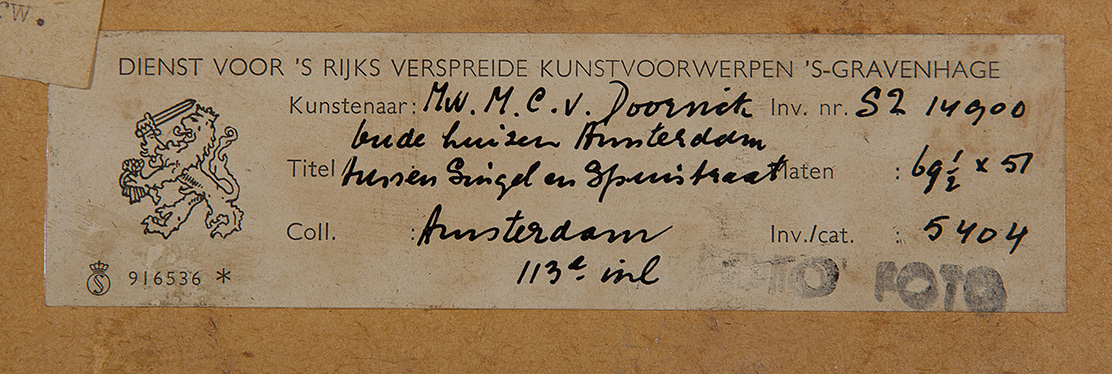 cw.
DIENST VOOR 'S RIJKS VERSPREIDE KUNSTVOORWERPEN 'S-GRAVENHAGE
Kunstenaar: Mw. M. C. v. Doornik Inv. nr. S2 14900
oude huizen Amsterdam
Titel tussen Singel en Spuistraat Maten : 69½ x 51
Coll. : Amsterdam Inv./cat. : 5404
113e inl FOTO FOTO
S 916536 *